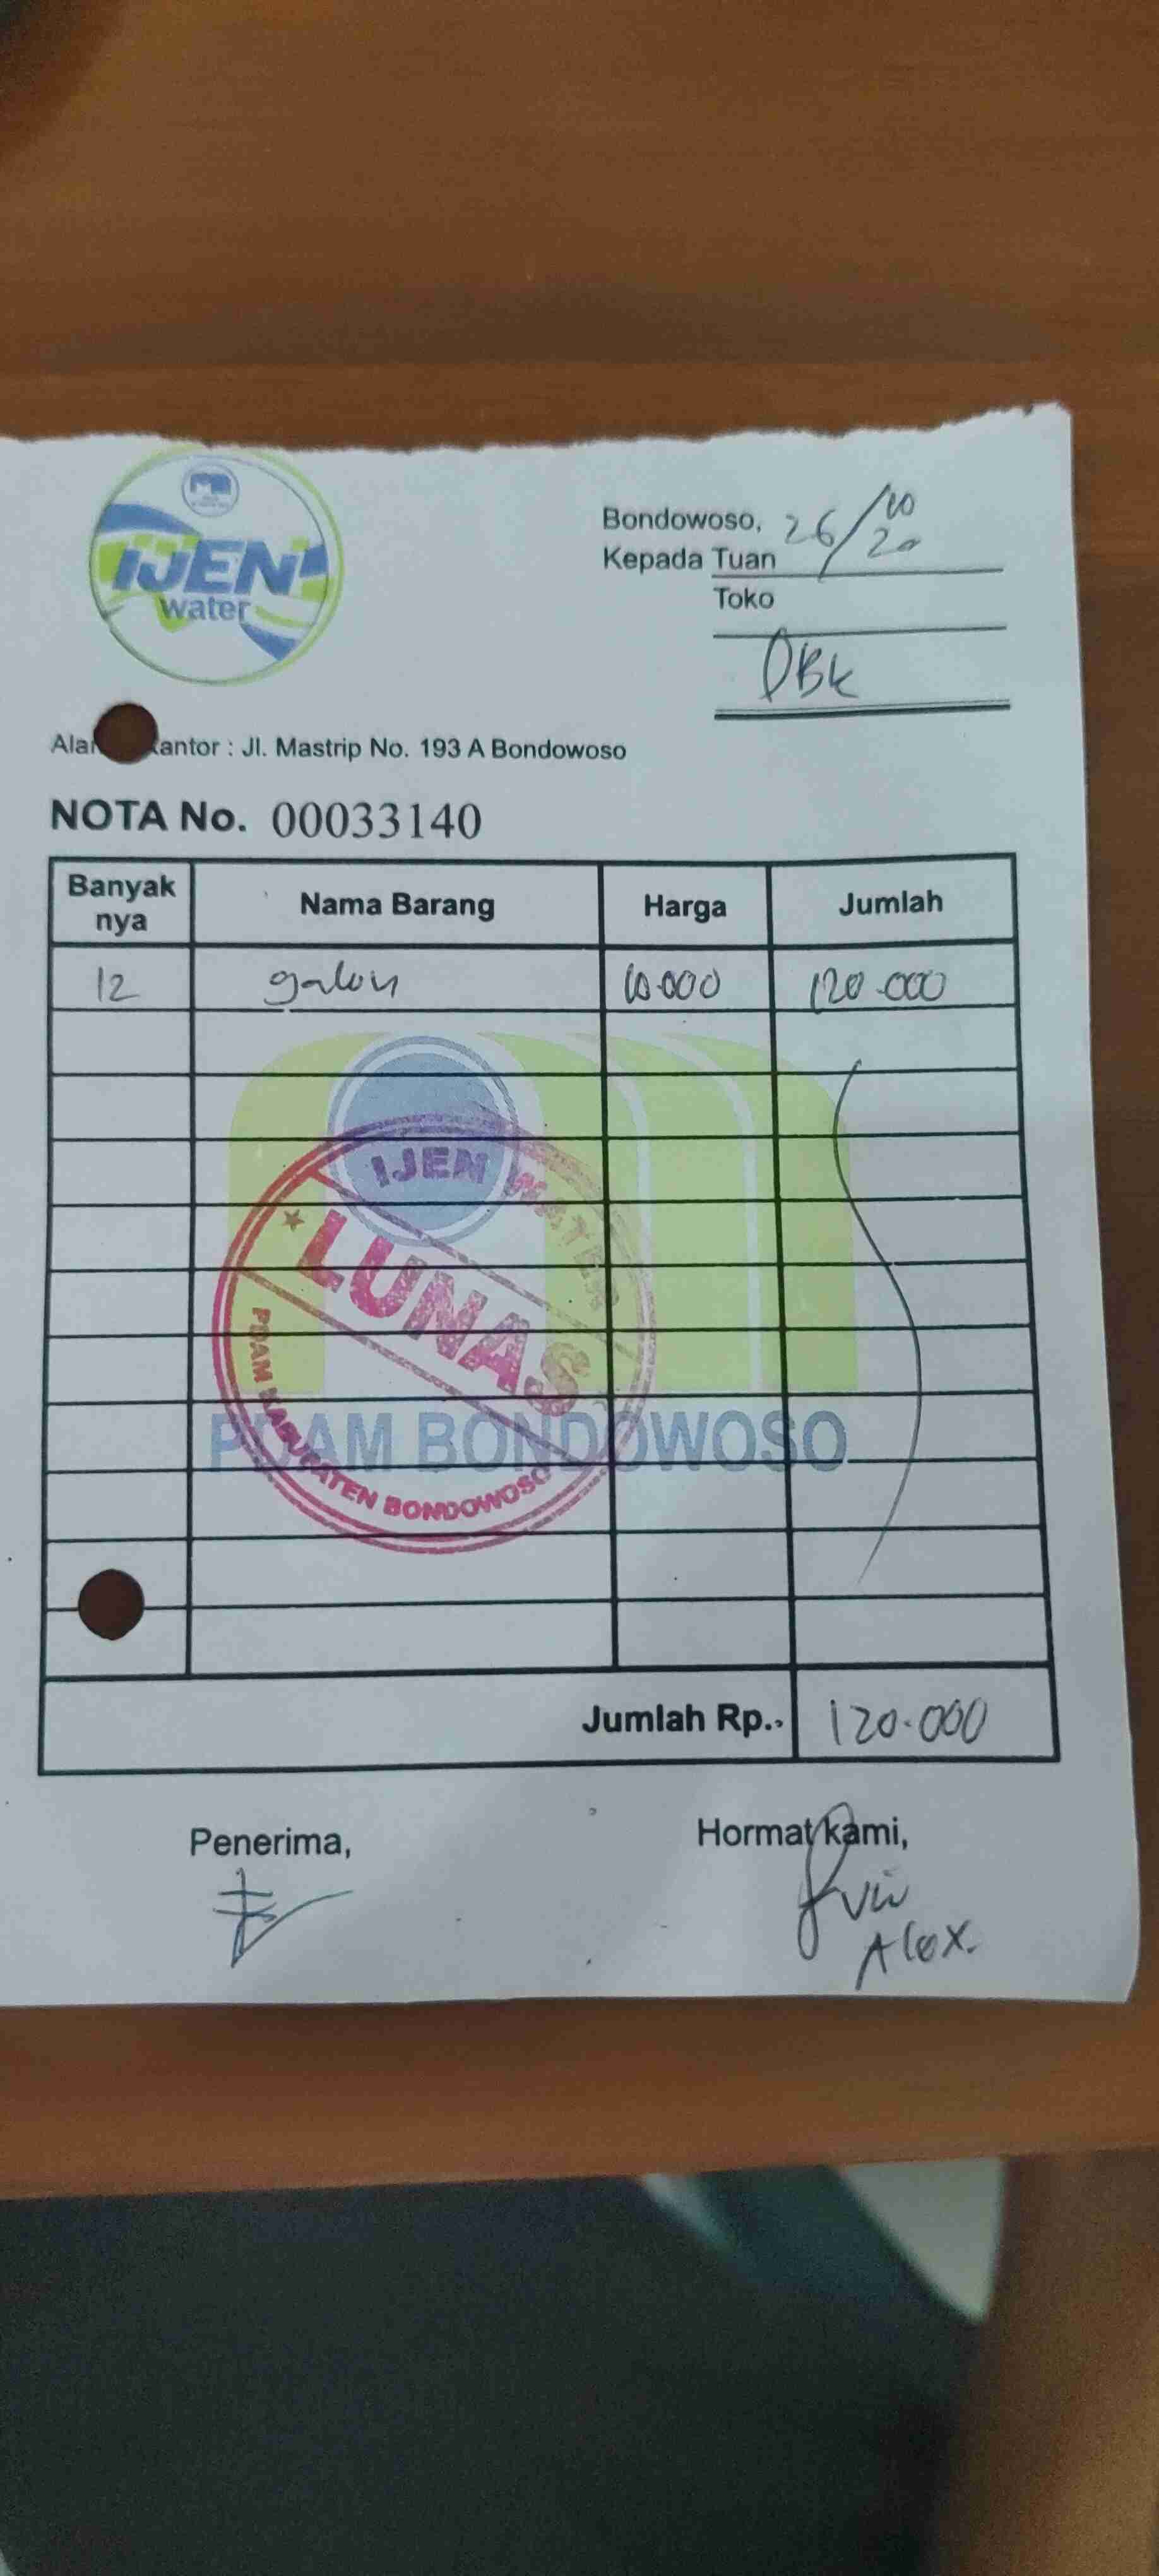 IJEN
water
Bondowoso, 26/10 20
Kepada Tuan
Toko
DBK
Kantor : Jl. Mastrip No. 193 A Bondowoso
NOTA No. 00033140
Banyak nya Nama Barang Harga Jumlah
12 galon 10.000 120.000
IJEN WATER
LUNAS
PDAM KABUPATEN BONDOWOSO
PDAM BONDOWOSO
Jumlah Rp.. 120.000
Penerima,
Hormat kami,
Alex.